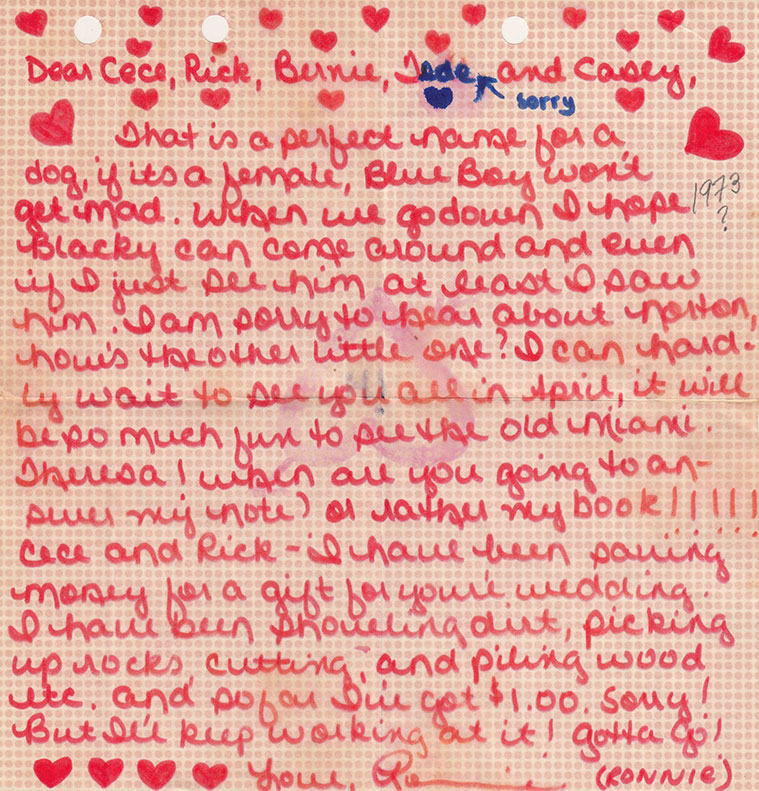 Dear Cece, Rick, Bernie, Tede, and Casey,
sorry
That is a perfect name for a
dog, if its a female, Blue Boy won't
get mad. When we go down I hope
1973
?
Blacky can come around and even
if I just see him at least I saw
him. I am sorry to hear about norton,
how's the other little one? I can hard-
ly wait to see you all in April, it will
be so much fun to see the old Miami.
Theresa! when are you going to an-
swer my note? or rather my book!!!!!!
Cece and Rick - I have been saving
money for a gift for you're wedding.
I have been shoveling dirt, picking
up rocks, cutting, and piling wood
etc. and so far I've got $1.00. Sorry!
But I'll keep working at it! gotta go!
Your, (RONNIE)